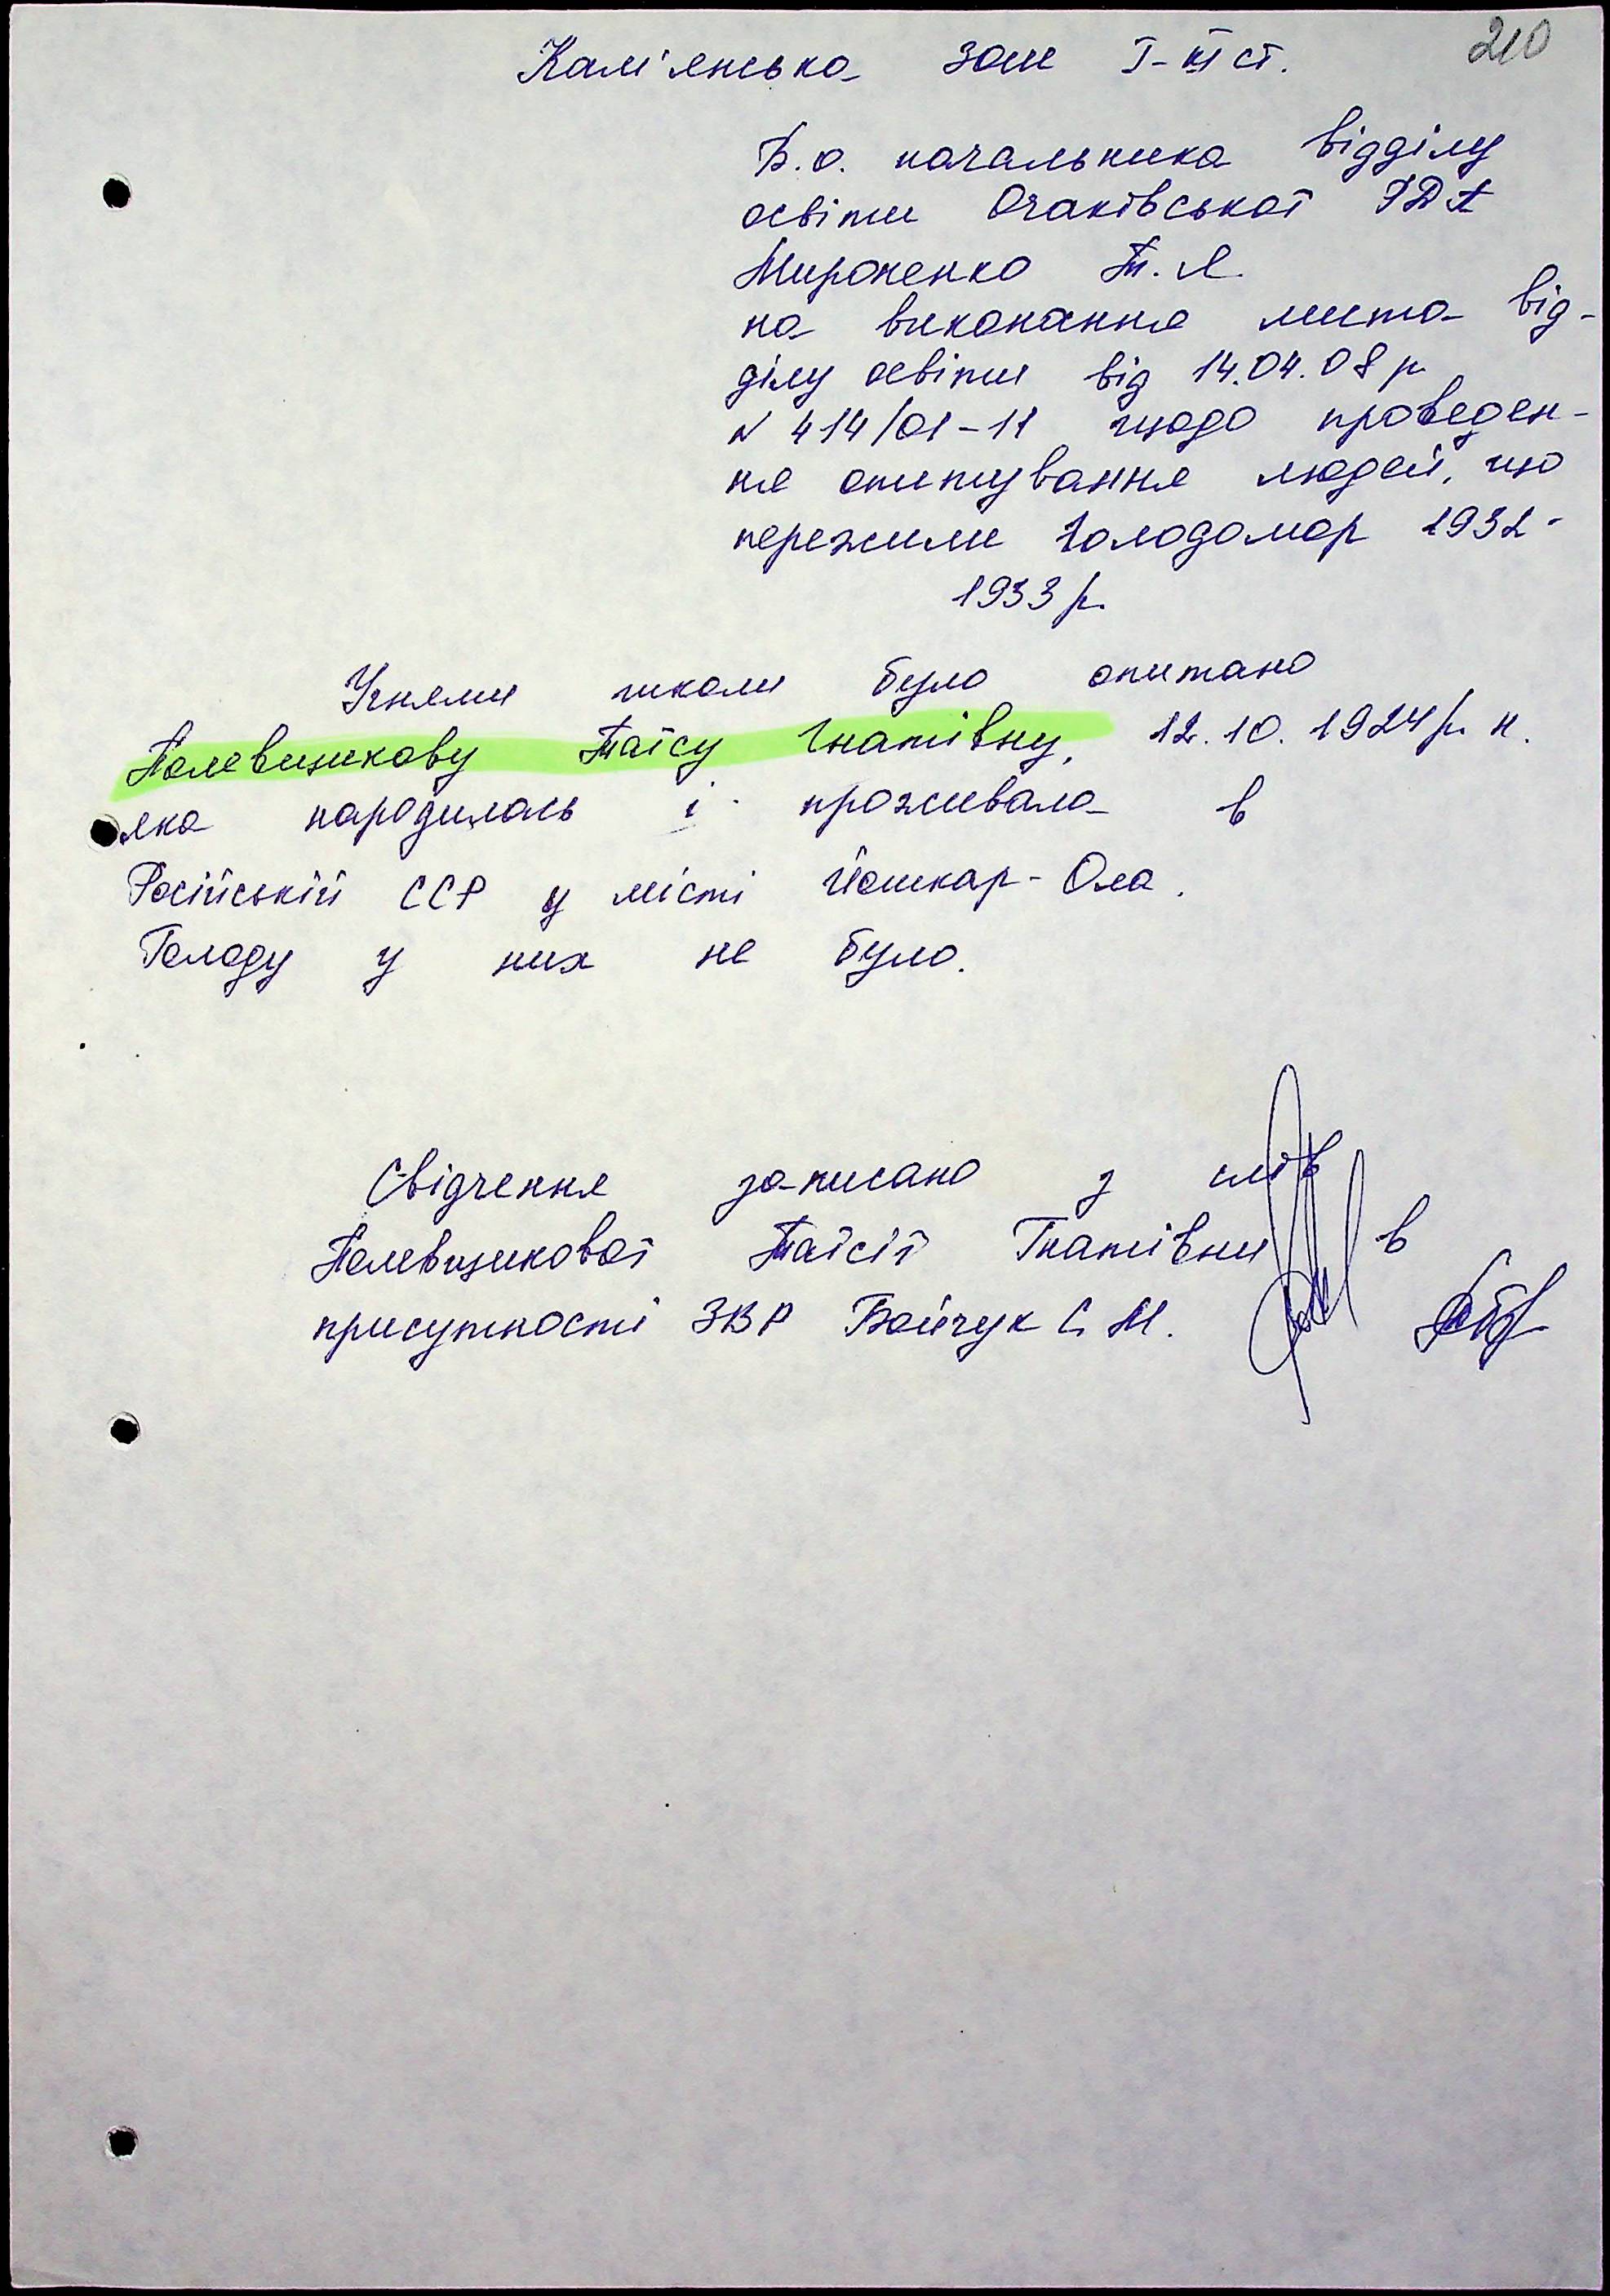 210
Кам'янська ЗОШ I-III ст.
В.о. начальника відділу
освіти Очаківської РДА
Мироненко Т. Я.
на виконання листа від-
ділу освіти від 14.04.08 р.
№ 414/01-11 щодо проведен-
ня опитування людей, що
пережили голодомор 1932-
1933 р.
Учнями школи було опитано
Полевщикову Таїсу Гнатівну, 12.10.1924 р. н.
яка народилась і проживала в
Російській ССР у місті Йошкар-Ола.
Голоду у них не було.
Свідчення записано з слів
Полевщикової Таїсії Гнатівни в
присутності ЗВР Бойчук С. М.